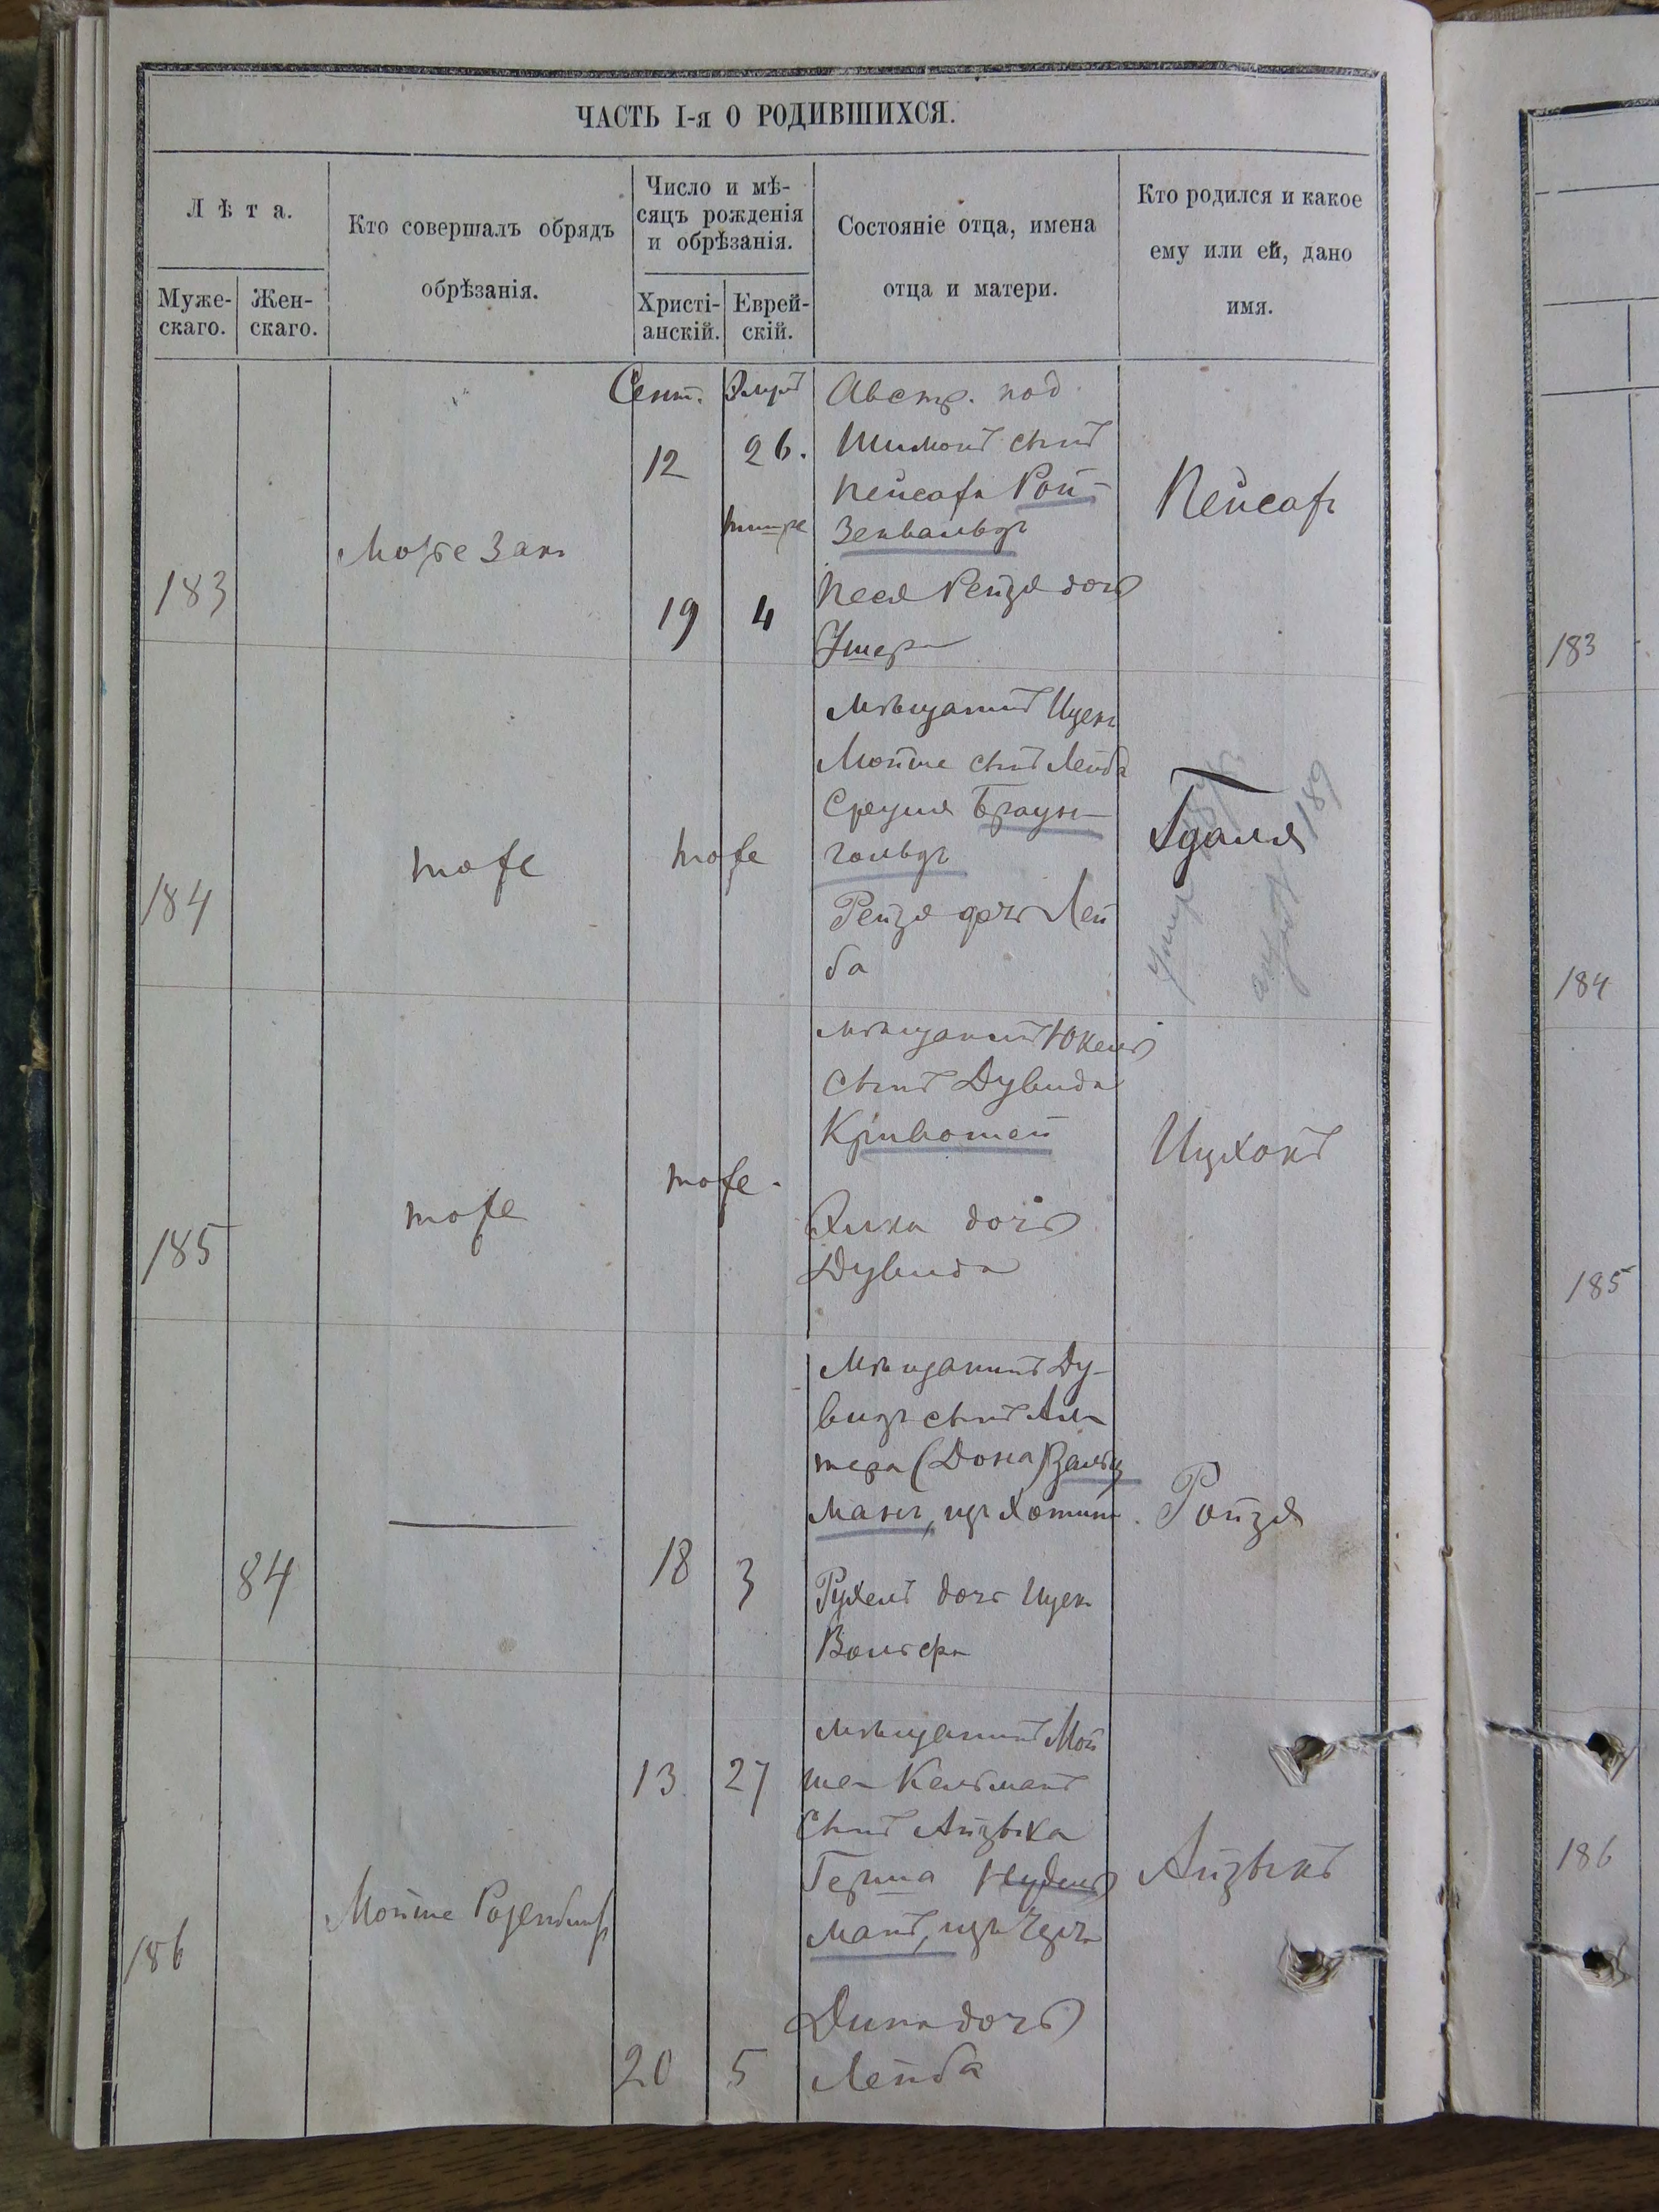 ЧАСТЬ I-я О РОДИВШИХСЯ.
Лѣта.
Муже-
скаго.
Жен-
скаго.
Кто совершалъ обрядъ
обрѣзанія.
Число и мѣ-
сяцъ рожденія
и обрѣзанія.
Христі-
анскій.
Еврей-
скій.
Состояніе отца, имена
отца и матери.
Кто родился и какое
ему или ей, дано
имя.
183
Сент.
12
19
Элулъ
26.
тишре
4
Австр. под
Шимонъ сынъ
Пейсаха Рой-
зенвальдъ
Песя Рейзя дочь
Ушера
Пейсахъ
184
тоже
тоже
Мѣщанинъ Ицекъ
Мойше сынъ Лейба
Сруля Браун-
гольдъ
Рейзя дочь Лей
ба
Гдаля
185
тоже
тоже.
Мѣщанинъ Юкель
сынъ Дувида
Кривошей
дочь
Дувида
Ицхокъ
84
18
3
Мѣщанинъ Ду-
видъ сынъ Аль
тера (Дона) Зальц
манъ, изъ Хотина
Рухель дочь Ицека
Вольфа
Ройзя
186
Мойше
13
20
27
5
Мѣщанинъ Мой
ше Кельманъ
сынъ Айзыка
Герша Нудель
манъ, изъ
Дина дочь
Лейба
Айзыкъ
183
184
185
186